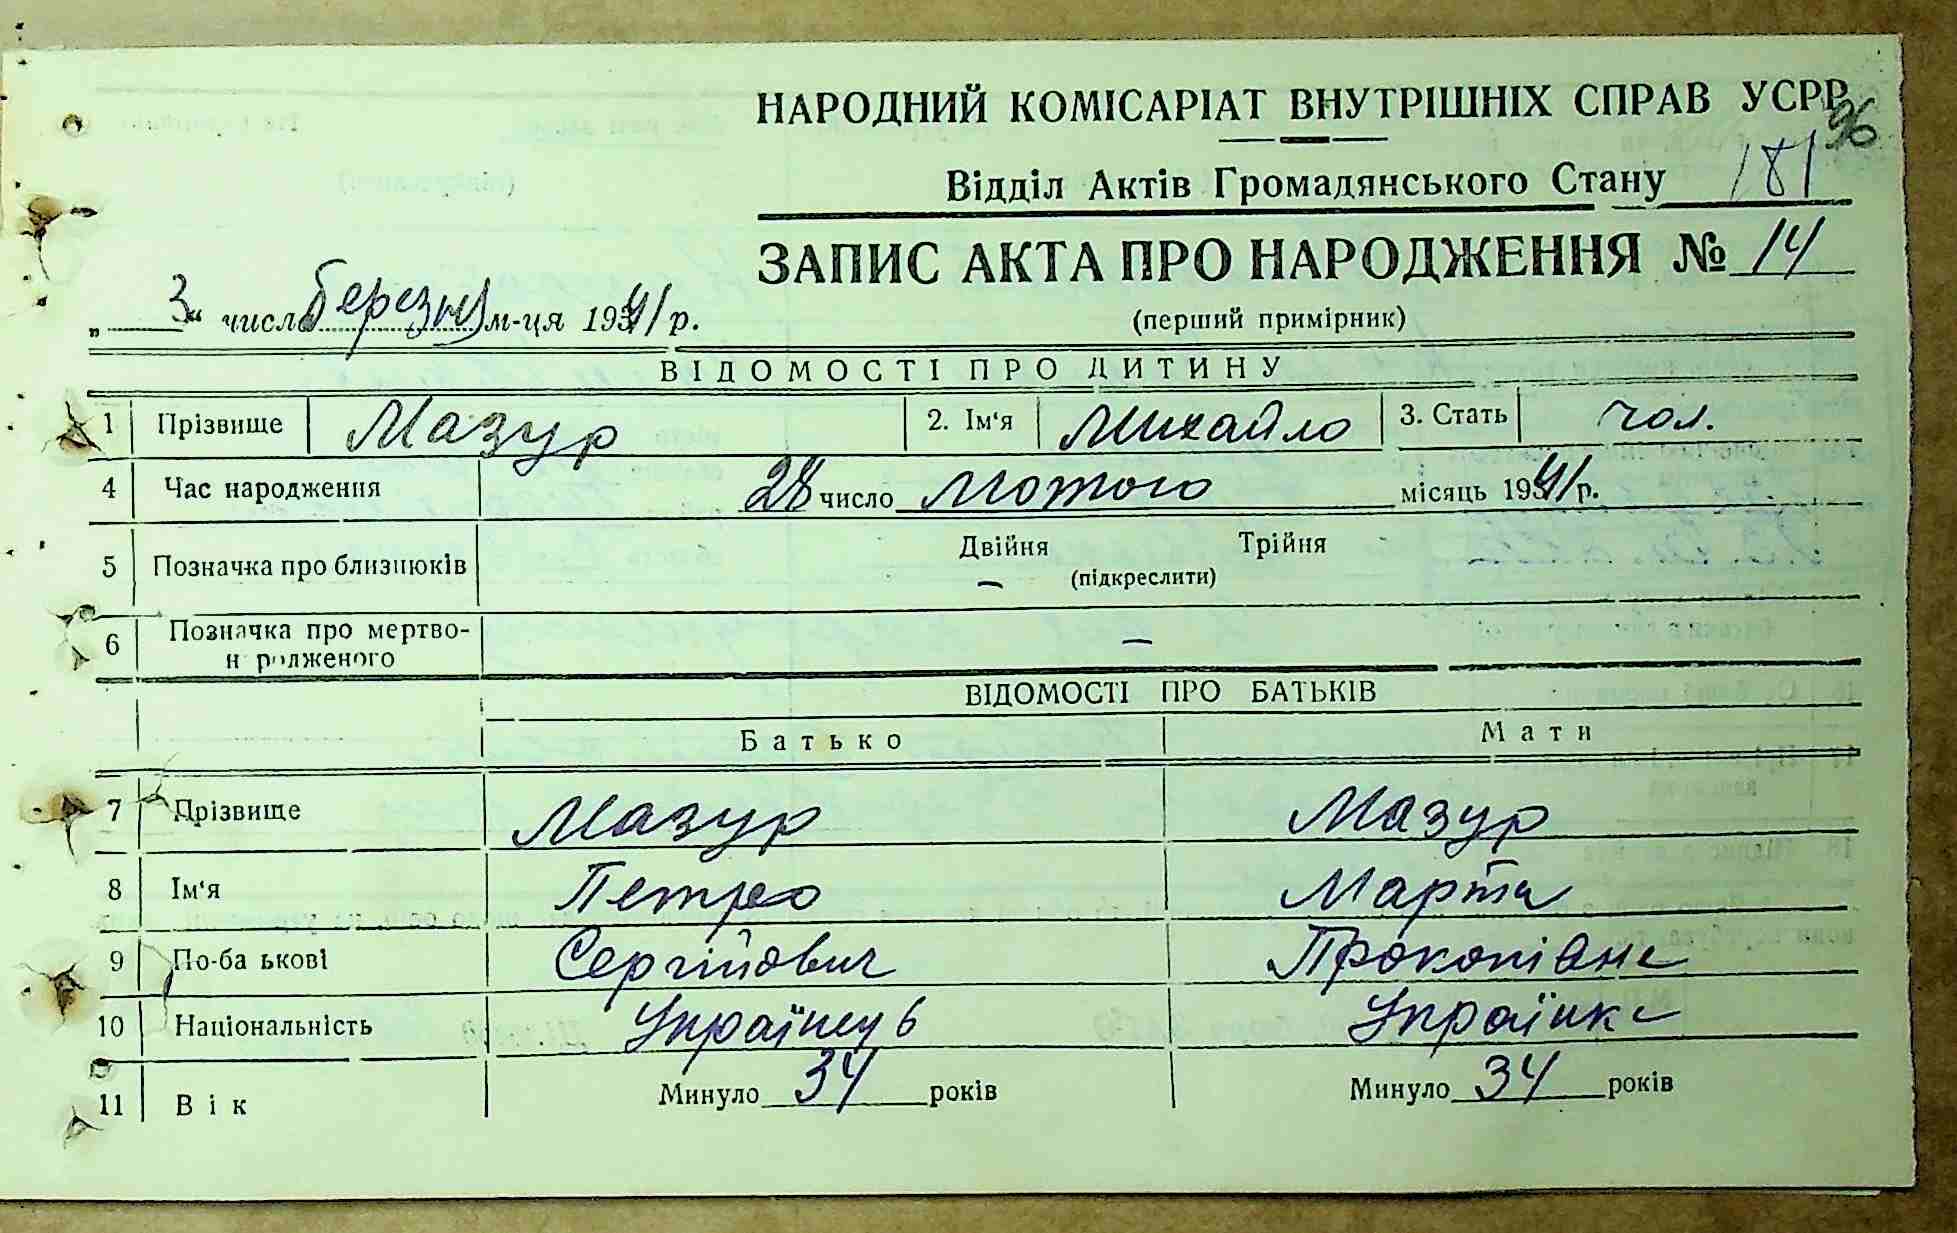 НАРОДНИЙ КОМІСАРІАТ ВНУТРІШНІХ СПРАВ УСРР
96
Відділ Актів Громадянського Стану 181
ЗАПИС АКТА ПРО НАРОДЖЕННЯ № 14
„ 3 “ число березня м-ця 1941 р.
(перший примірник)
ВІДОМОСТІ ПРО ДИТИНУ
1 Прізвище Мазур 2. Ім‘я Михайло 3. Стать чол.
4 Час народження 28 число Лютого місяць 1941 р.
5 Позначка про близнюків Двійня Трійня
— (підкреслити)
6 Позначка про мертво-
н родженого —
ВІДОМОСТІ ПРО БАТЬКІВ
Батько Мати
7 Прізвище Мазур Мазур
8 Ім‘я Петро Марта
9 По-ба ькові Сергійович Прокопівна
10 Національність Українець Українка
11 Вік Минуло 34 років Минуло 34 років